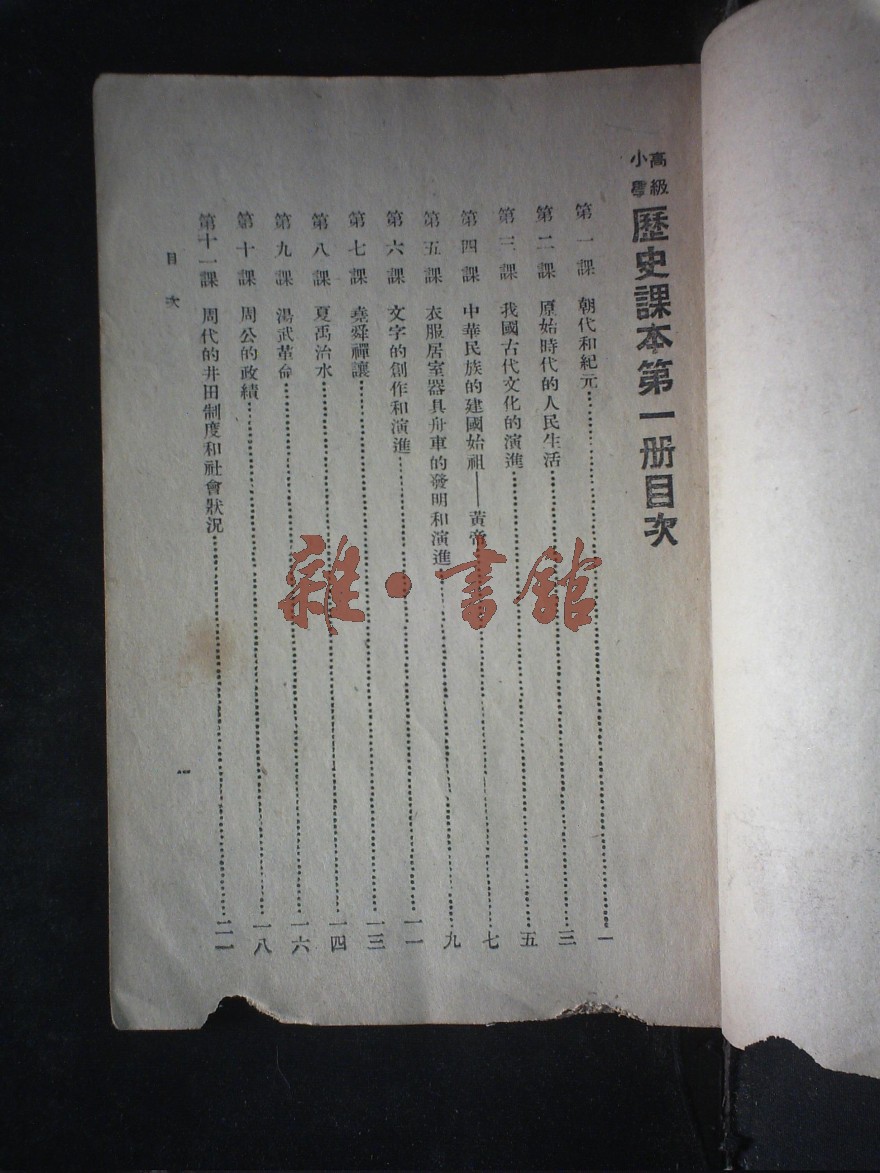 高級
小學
歷史課本第一册目次
第一課 朝代和紀元……一
第二課 原始時代的人民生活……三
第三課 我國古代文化的演進……五
第四課 中華民族的建國始祖——黃帝……七
第五課 衣服居室器具舟車的發明和演進……九
第六課 文字的創作和演進……一一
第七課 堯舜禪讓……一三
第八課 夏禹治水……一四
第九課 湯武革命……一六
第十課 周公的政績……一八
第十一課 周代的井田制度和社會狀況……二一
目次
一
雜·書館